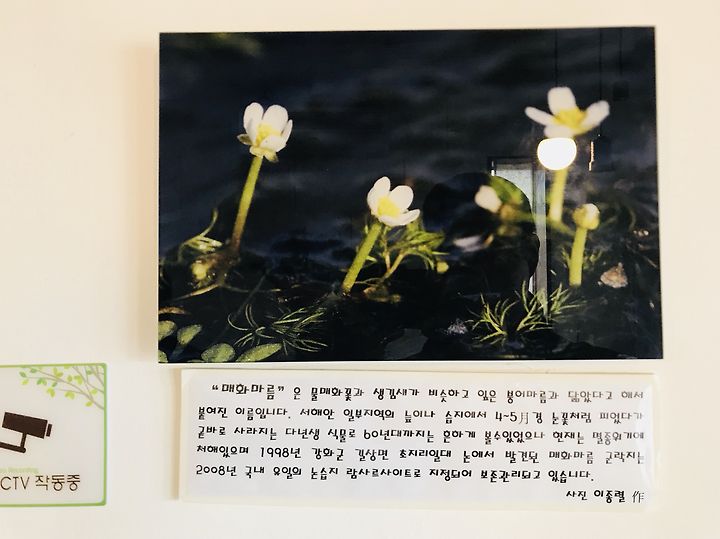 "매화마름" 은 물매화꽃과 생김새가 비슷하고 잎은 붕어마름과 닮았다고 해서
붙여진 이름입니다. 서해안 일부지역의 늪이나 습지에서 4~5月경 눈꽃처럼 피었다가
곧바로 사라지는 다년생 식물로 60년대까지는 흔하게 볼수있었으나 현재는 멸종위기에
처해있으며 1998년 강화군 길상면 초지리일대 논에서 발견된 매화마름 군락지는
2008년 국내 유일의 논습지 람사르사이트로 지정되어 보존관리되고 있습니다.
사진 이종렬 作
Recording
CTV 작동중